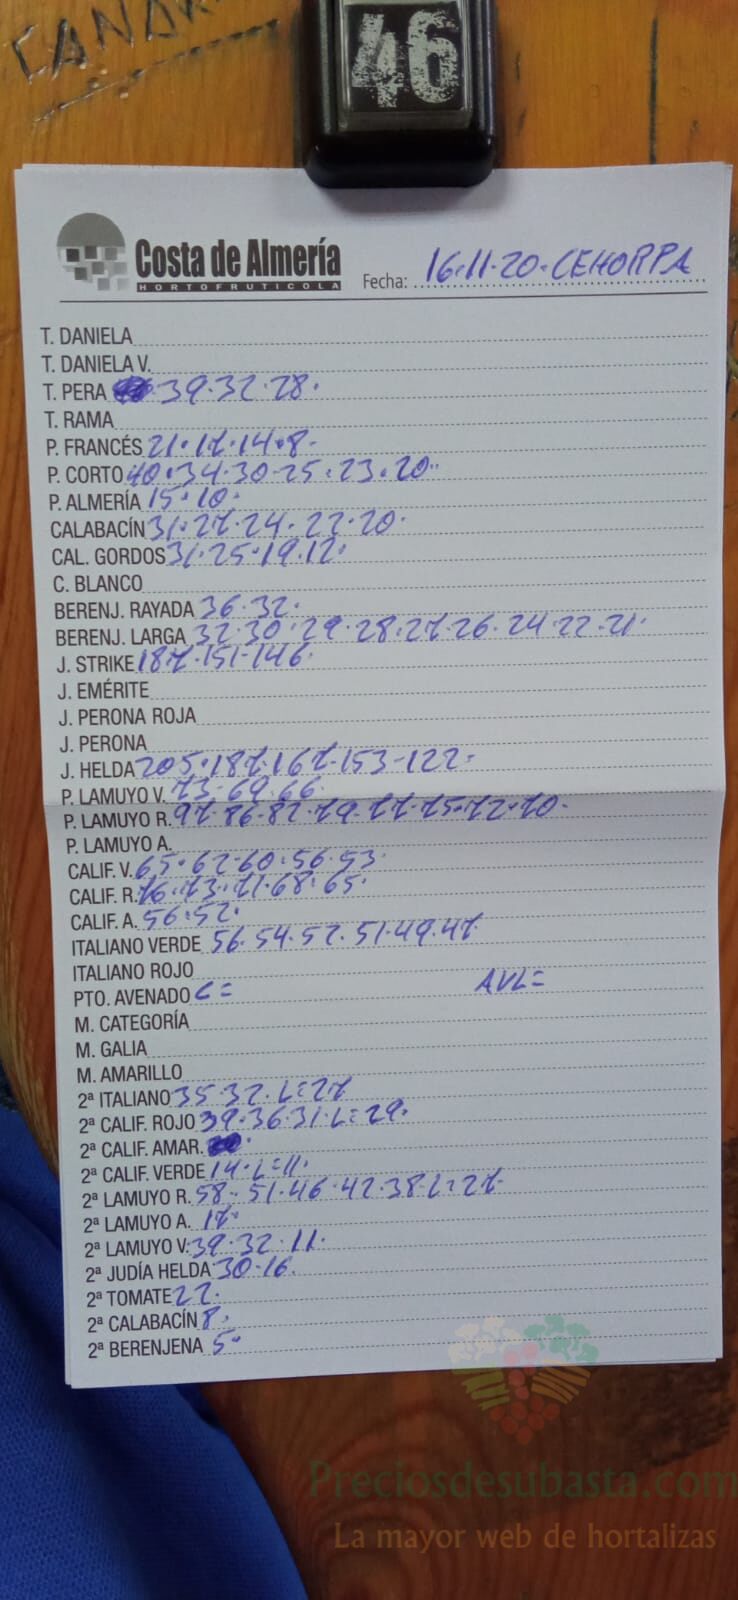 CANA
46
Costa de Almería
HORTOFRUTICOLA
Fecha: 16·11·20·CEHORPA
T. DANIELA
T. DANIELA V.
T. PERA 39·32·28·
T. RAMA
P. FRANCÉS 21·17·14·8·
P. CORTO 40·34·30·25·23·20··
P. ALMERÍA 15·10·
CALABACÍN 31·27·24·22·20·
CAL. GORDOS 31·25·19·12·
C. BLANCO
BERENJ. RAYADA 36·32·
BERENJ. LARGA 32·30·29·28·27·26·24·22·21·
J. STRIKE 187·151·146·
J. EMÉRITE
J. PERONA ROJA
J. PERONA
J. HELDA 205·187·167·153-122·
P. LAMUYO V. 73·69·66·
P. LAMUYO R. 97·86·82·79·77·75·72·70·
P. LAMUYO A.
CALIF. V. 65·62·60·56·53
CALIF. R. 76·73·71·68·65·
CALIF. A. 56·52·
ITALIANO VERDE 56·54·52·51·49·47
ITALIANO ROJO
PTO. AVENADO C= AVL=
M. CATEGORÍA
M. GALIA
M. AMARILLO
2ª ITALIANO 35·32·L=27
2ª CALIF. ROJO 39·36·31·L=29·
2ª CALIF. AMAR.
2ª CALIF. VERDE 14·L=11·
2ª LAMUYO R. 58·51·46·42·38·L=27·
2ª LAMUYO A. 17·
2ª LAMUYO V. 39·32·11·
2ª JUDÍA HELDA 30·16·
2ª TOMATE 22·
2ª CALABACÍN 8·
2ª BERENJENA 5·
Preciosdesubasta.com
La mayor web de hortalizas